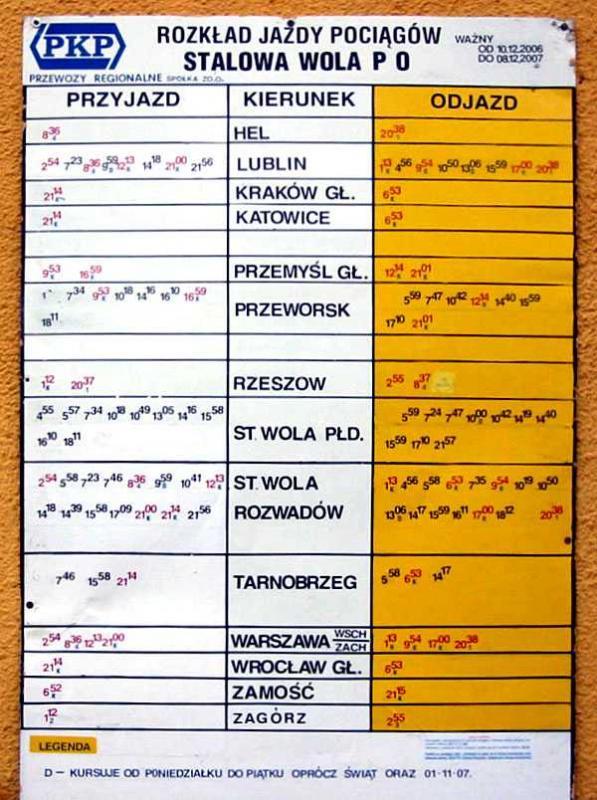 PKP
PRZEWOZY REGIONALNE SPÓŁKA ZO.O.
ROZKŁAD JAZDY POCIĄGÓW
STALOWA WOLA P O
WAŻNY
OD 10.12.2006
DO 08.12.2007
PRZYJAZD KIERUNEK ODJAZD
8 36 HEL 20 38
2 54 7 23 8 36 9 59 12 13 14 18 21 00 21 56 LUBLIN 1 13 4 56 9 54 10 50 13 06 15 59 17 00 20 38
21 14 KRAKÓW GŁ. 6 53
21 14 KATOWICE 6 53
9 53 16 59 PRZEMYŚL GŁ. 12 14 21 01
7 34 9 53 10 18 14 16 16 10 16 59 PRZEWORSK 5 59 7 47 10 42 12 14 14 40 15 59
18 11 17 10 21 01
1 12 20 37 RZESZOW 2 55 8 37
4 55 5 57 7 34 10 18 10 49 13 05 14 16 15 58 ST. WOLA PŁD. 5 59 7 24 7 47 10 00 10 42 14 19 14 40
16 10 18 11 15 59 17 10 21 57
2 54 5 58 7 23 7 46 8 36 9 59 10 41 12 13 ST. WOLA 1 13 4 56 5 58 6 53 7 35 9 54 10 19 10 50
14 18 14 39 15 58 17 09 21 00 21 14 21 56 ROZWADÓW 13 06 14 17 15 59 16 11 17 00 18 12 20 38
7 46 15 58 21 14 TARNOBRZEG 5 58 6 53 14 17
2 54 8 36 12 13 21 00 WARSZAWA WSCH ZACH 1 13 9 54 17 00 20 38
21 14 WROCŁAW GŁ. 6 53
6 52 ZAMOŚĆ 21 15
1 12 ZAGÓRZ 2 55
LEGENDA
D – KURSUJE OD PONIEDZIAŁKU DO PIĄTKU OPRÓCZ ŚWIĄT ORAZ 01-11-07.